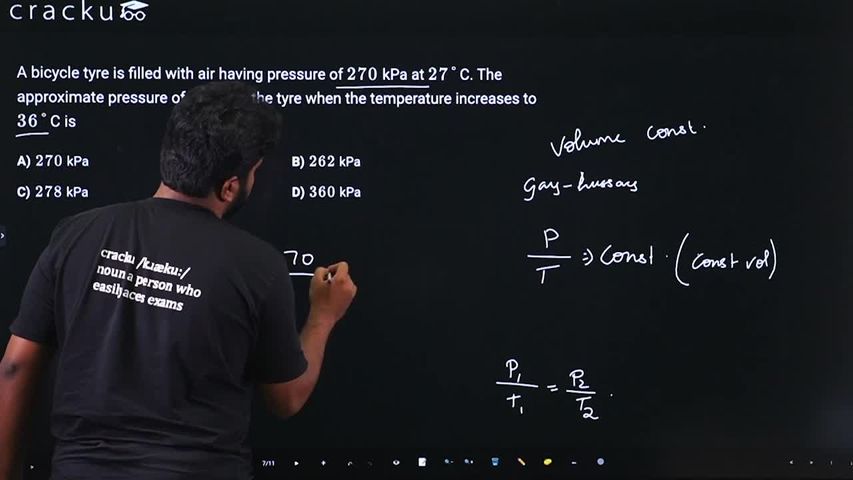 cracku
A bicycle tyre is filled with air having pressure of 270 kPa at 27°C. The
approximate pressure of the tyre when the temperature increases to
36°C is
A) 270 kPa
B) 262 kPa
C) 278 kPa
D) 360 kPa
volume const.
gay-lussacs
P/T ⇒ const. (const vol)
P₁/T₁ = P₂/T₂.
70
cracku /kɹæku:/
noun a person who
easily aces exams
7/11